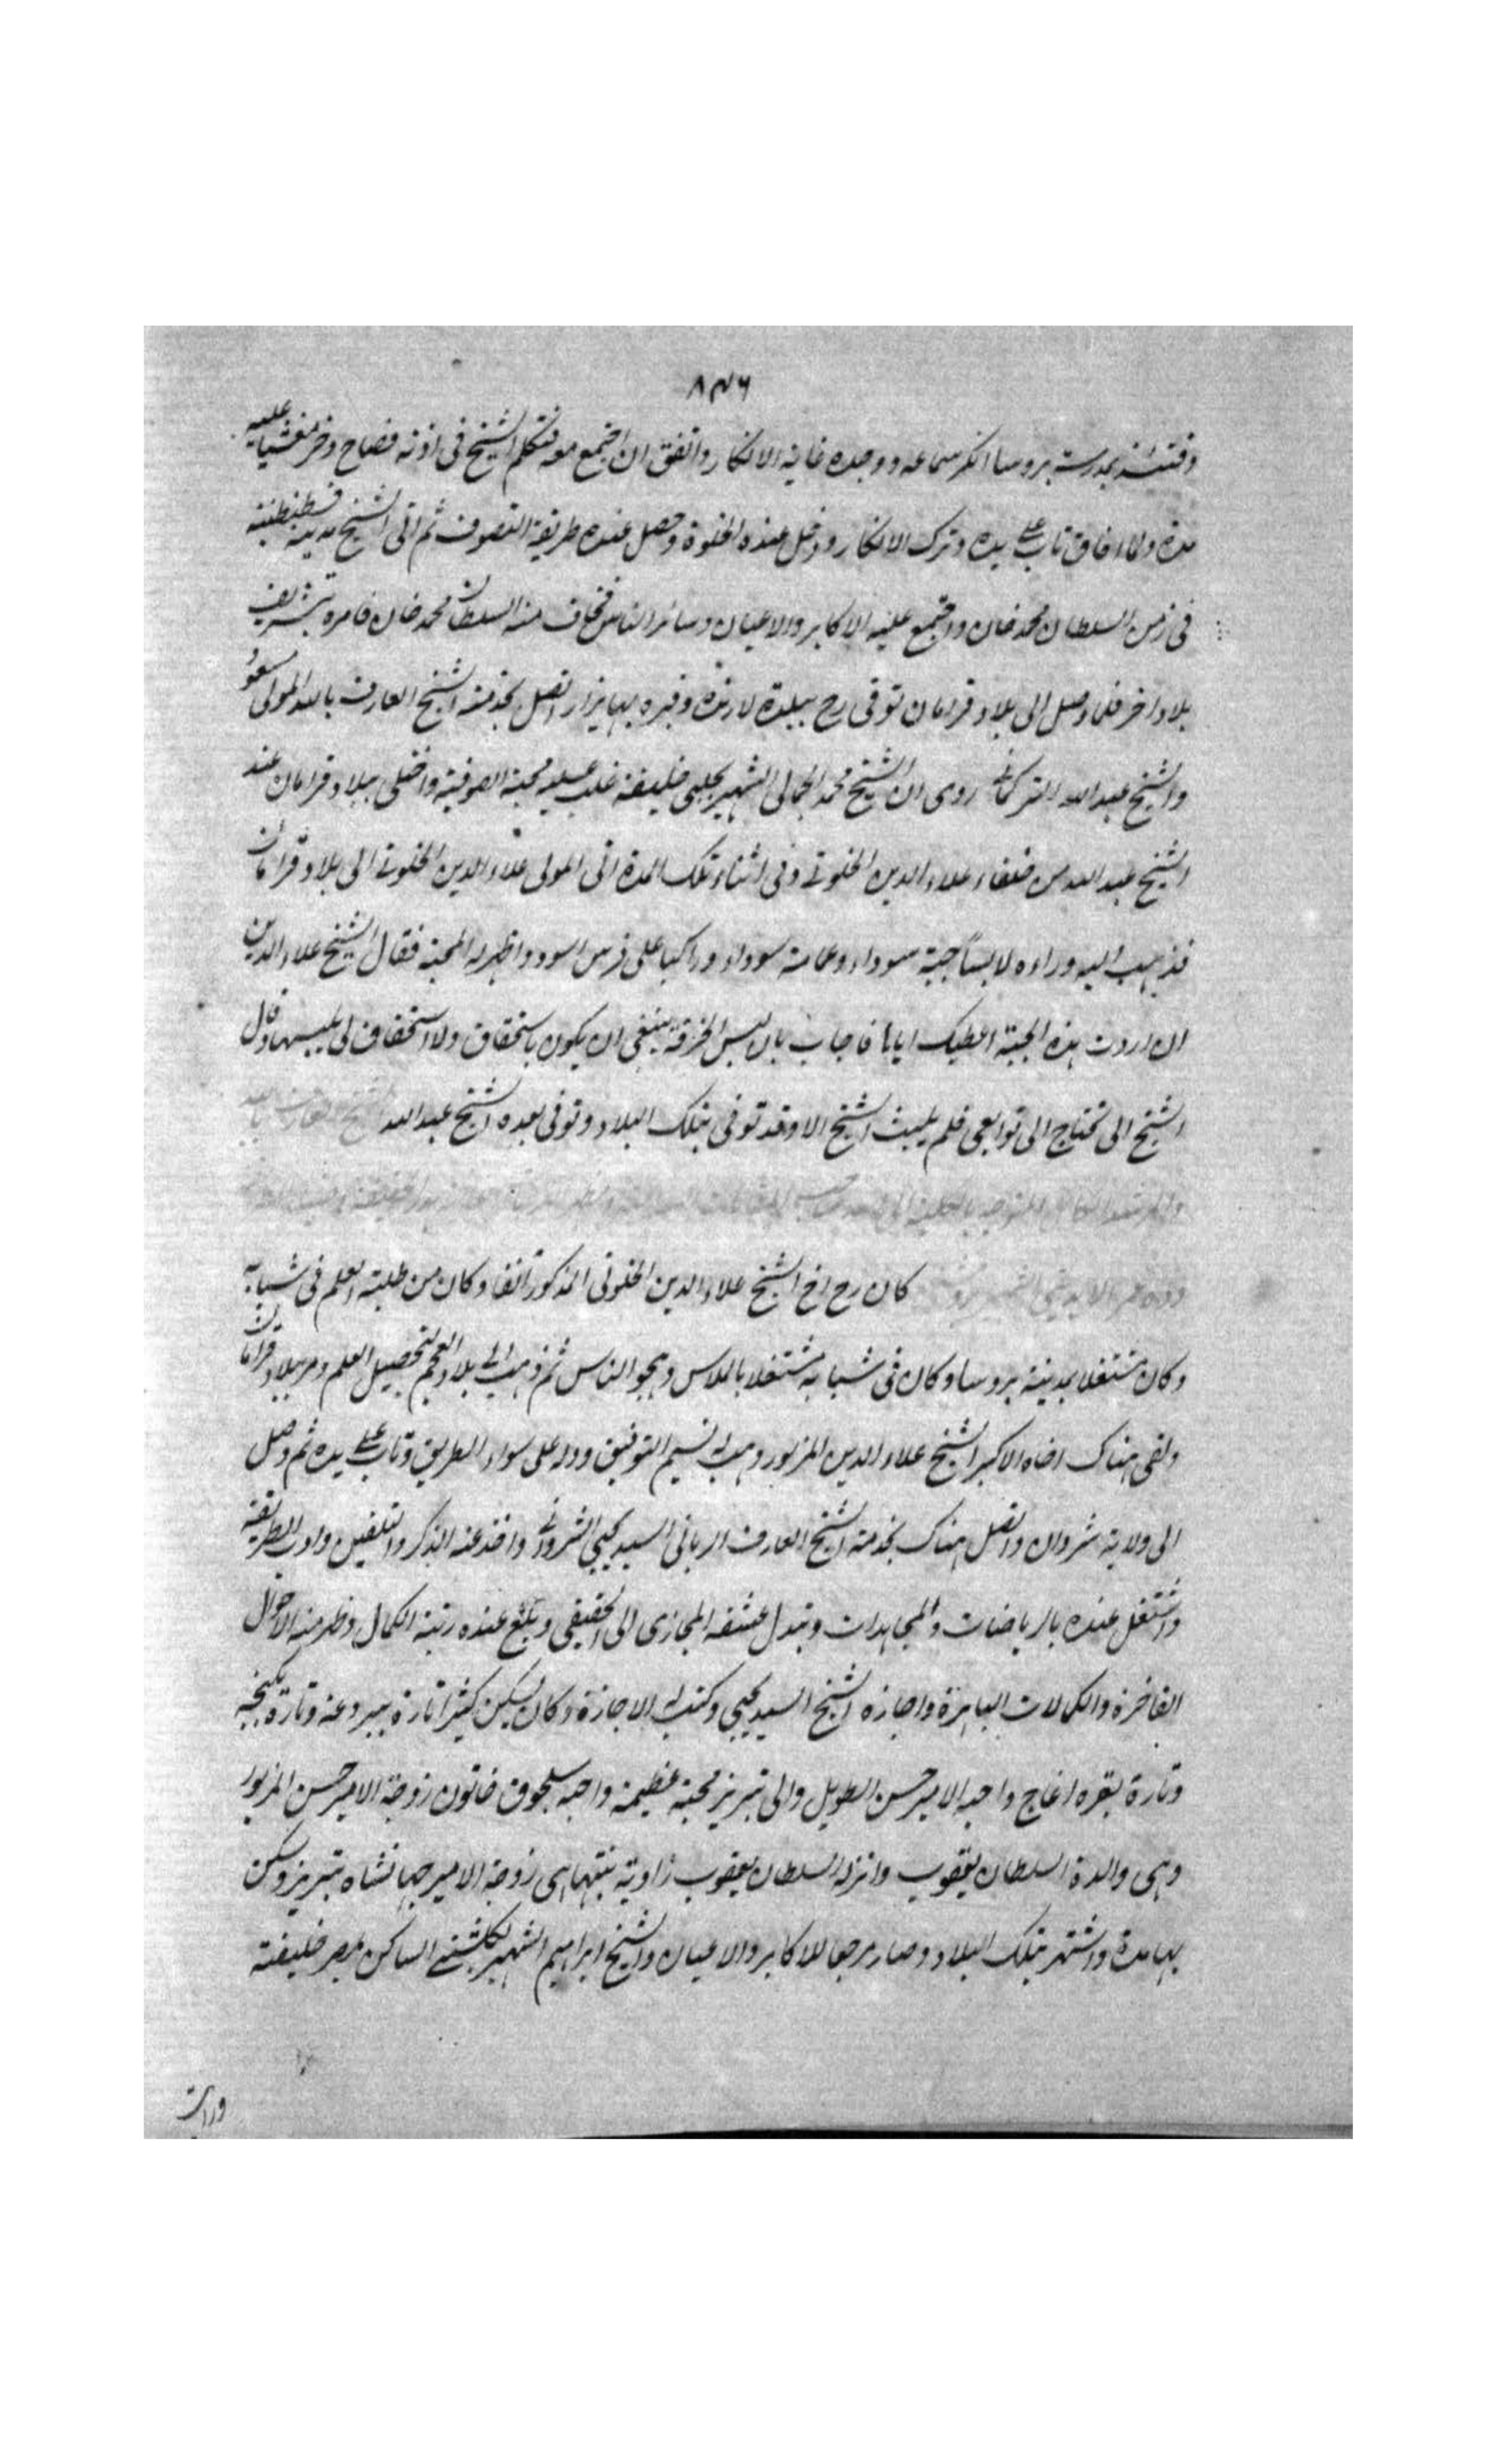 ٨٣٦
وقتئذ بمدرسة بروسا انكر سماعه ووجده غاية الانكار واتفق ان اجتمع معه فتكلم الشيخ فى اذنه فصاح وخر مغشيا عليه
مدة ولما افاق تاب على يده وترك الانكار ودخل عنده الخلوة وحصل عنده طريقة التصوف ثم اتى الشيخ مدينة قسطنطينية
فى زمن السلطان محمد خان واجتمع عليه الاكابر والاعيان وسائر الناس فخاف منه السلطان محمد خان فامره بتشريف
بلاد اخر فلما وصل الى بلاد قرامان توفى رح ببلدة لارنده وقبره بها يزار اتصل بخدمته الشيخ العارف بالله المولى مسعود
والشيخ عبد الله التركمانى روى ان الشيخ محمد الجمالى الشهير بچلبى خليفه غلب عليه محبة الصوفية واختلى ببلاد قرامان عند
الشيخ عبد الله من خلفاء علاء الدين الخلوتى وفى اثناء تلك المدة اتى المولى علاء الدين الخلوتى الى بلاد قرامان
فذهب اليه وراءه لابسا جبة سوداء وعمامة سوداء وراكبا على فرس اسود واظهر له المحبة فقال الشيخ علاء الدين
ان اردت هذه الجبة اعطيك اياها فاجاب بان لبس الخرقة ينبغى ان يكون باستحقاق ولا استحقاق لى بلبسها وقال
الشيخ الى تحتاج الى توابعى فلم يلبث الشيخ الا وقد توفى بتلك البلاد وتوفى بعده الشيخ عبد الله الشيخ العارف بالله
والمرشد الكامل المتوجه بالكلية الى الله
دده عمر الايدينى الشهير كان رح اخ الشيخ علاء الدين الخلوتى المذكور آنفا وكان من طلبة العلم فى شبابه
وكان مشتغلا بمدينة بروسا وكان فى شبابه مشتغلا بالملاس وهجو الناس ثم ذهب الى بلاد العجم لتحصيل العلم ومر ببلاد قرامان
ولقى هناك اخاه الاكبر الشيخ علاء الدين المزبور وهب له نسيم التوفيق ودله على سواء الطريق وتاب على يده ثم وصل
الى ولاية شروان واتصل هناك بخدمة الشيخ العارف الربانى السيد يحيى الشروانى واخذ عنه الذكر والتلقين واداب الطريقة
واشتغل عنده بالرياضات والمجاهدات وتبدل عشقه المجازى الى الحقيقى وبلغ عنده رتبة الكمال وظهر منه الاحوال
الفاخرة والكمالات الباهرة واجازه الشيخ السيد يحيى وكتب له الاجازة وكان يسكن كثيرا تارة ببردعه وتارة بكنجه
وتارة بقره اغاج واحبه الامير حسن الطويل والى تبريز محبة عظيمة واحبه سلجوق خاتون زوجة الامير حسن المزبور
وهى والدة السلطان يعقوب وانزله السلطان يعقوب زاوية بنتها هى زوجة الامير جهانشاه بتبريز وسكن
بها مدة واشتهر بتلك البلاد وصار مرجعا للاكابر والاعيان والشيخ ابراهيم الشهير بكلشنى الساكن بمصر خليفته